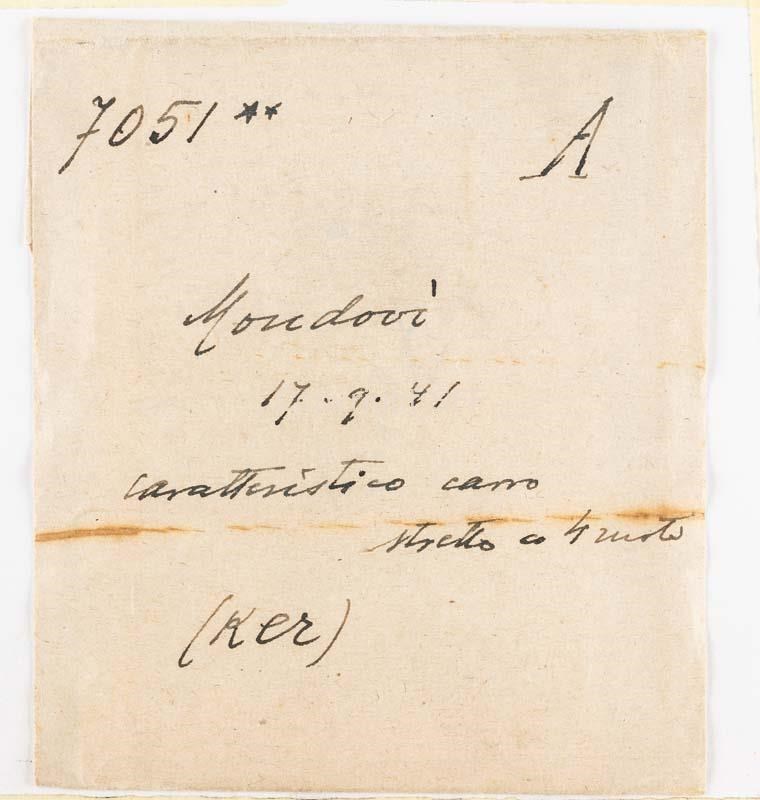 7051 ** A
Mondovì
17.9.41
caratteristico carro
stretto a 4 ruote
(Ker)